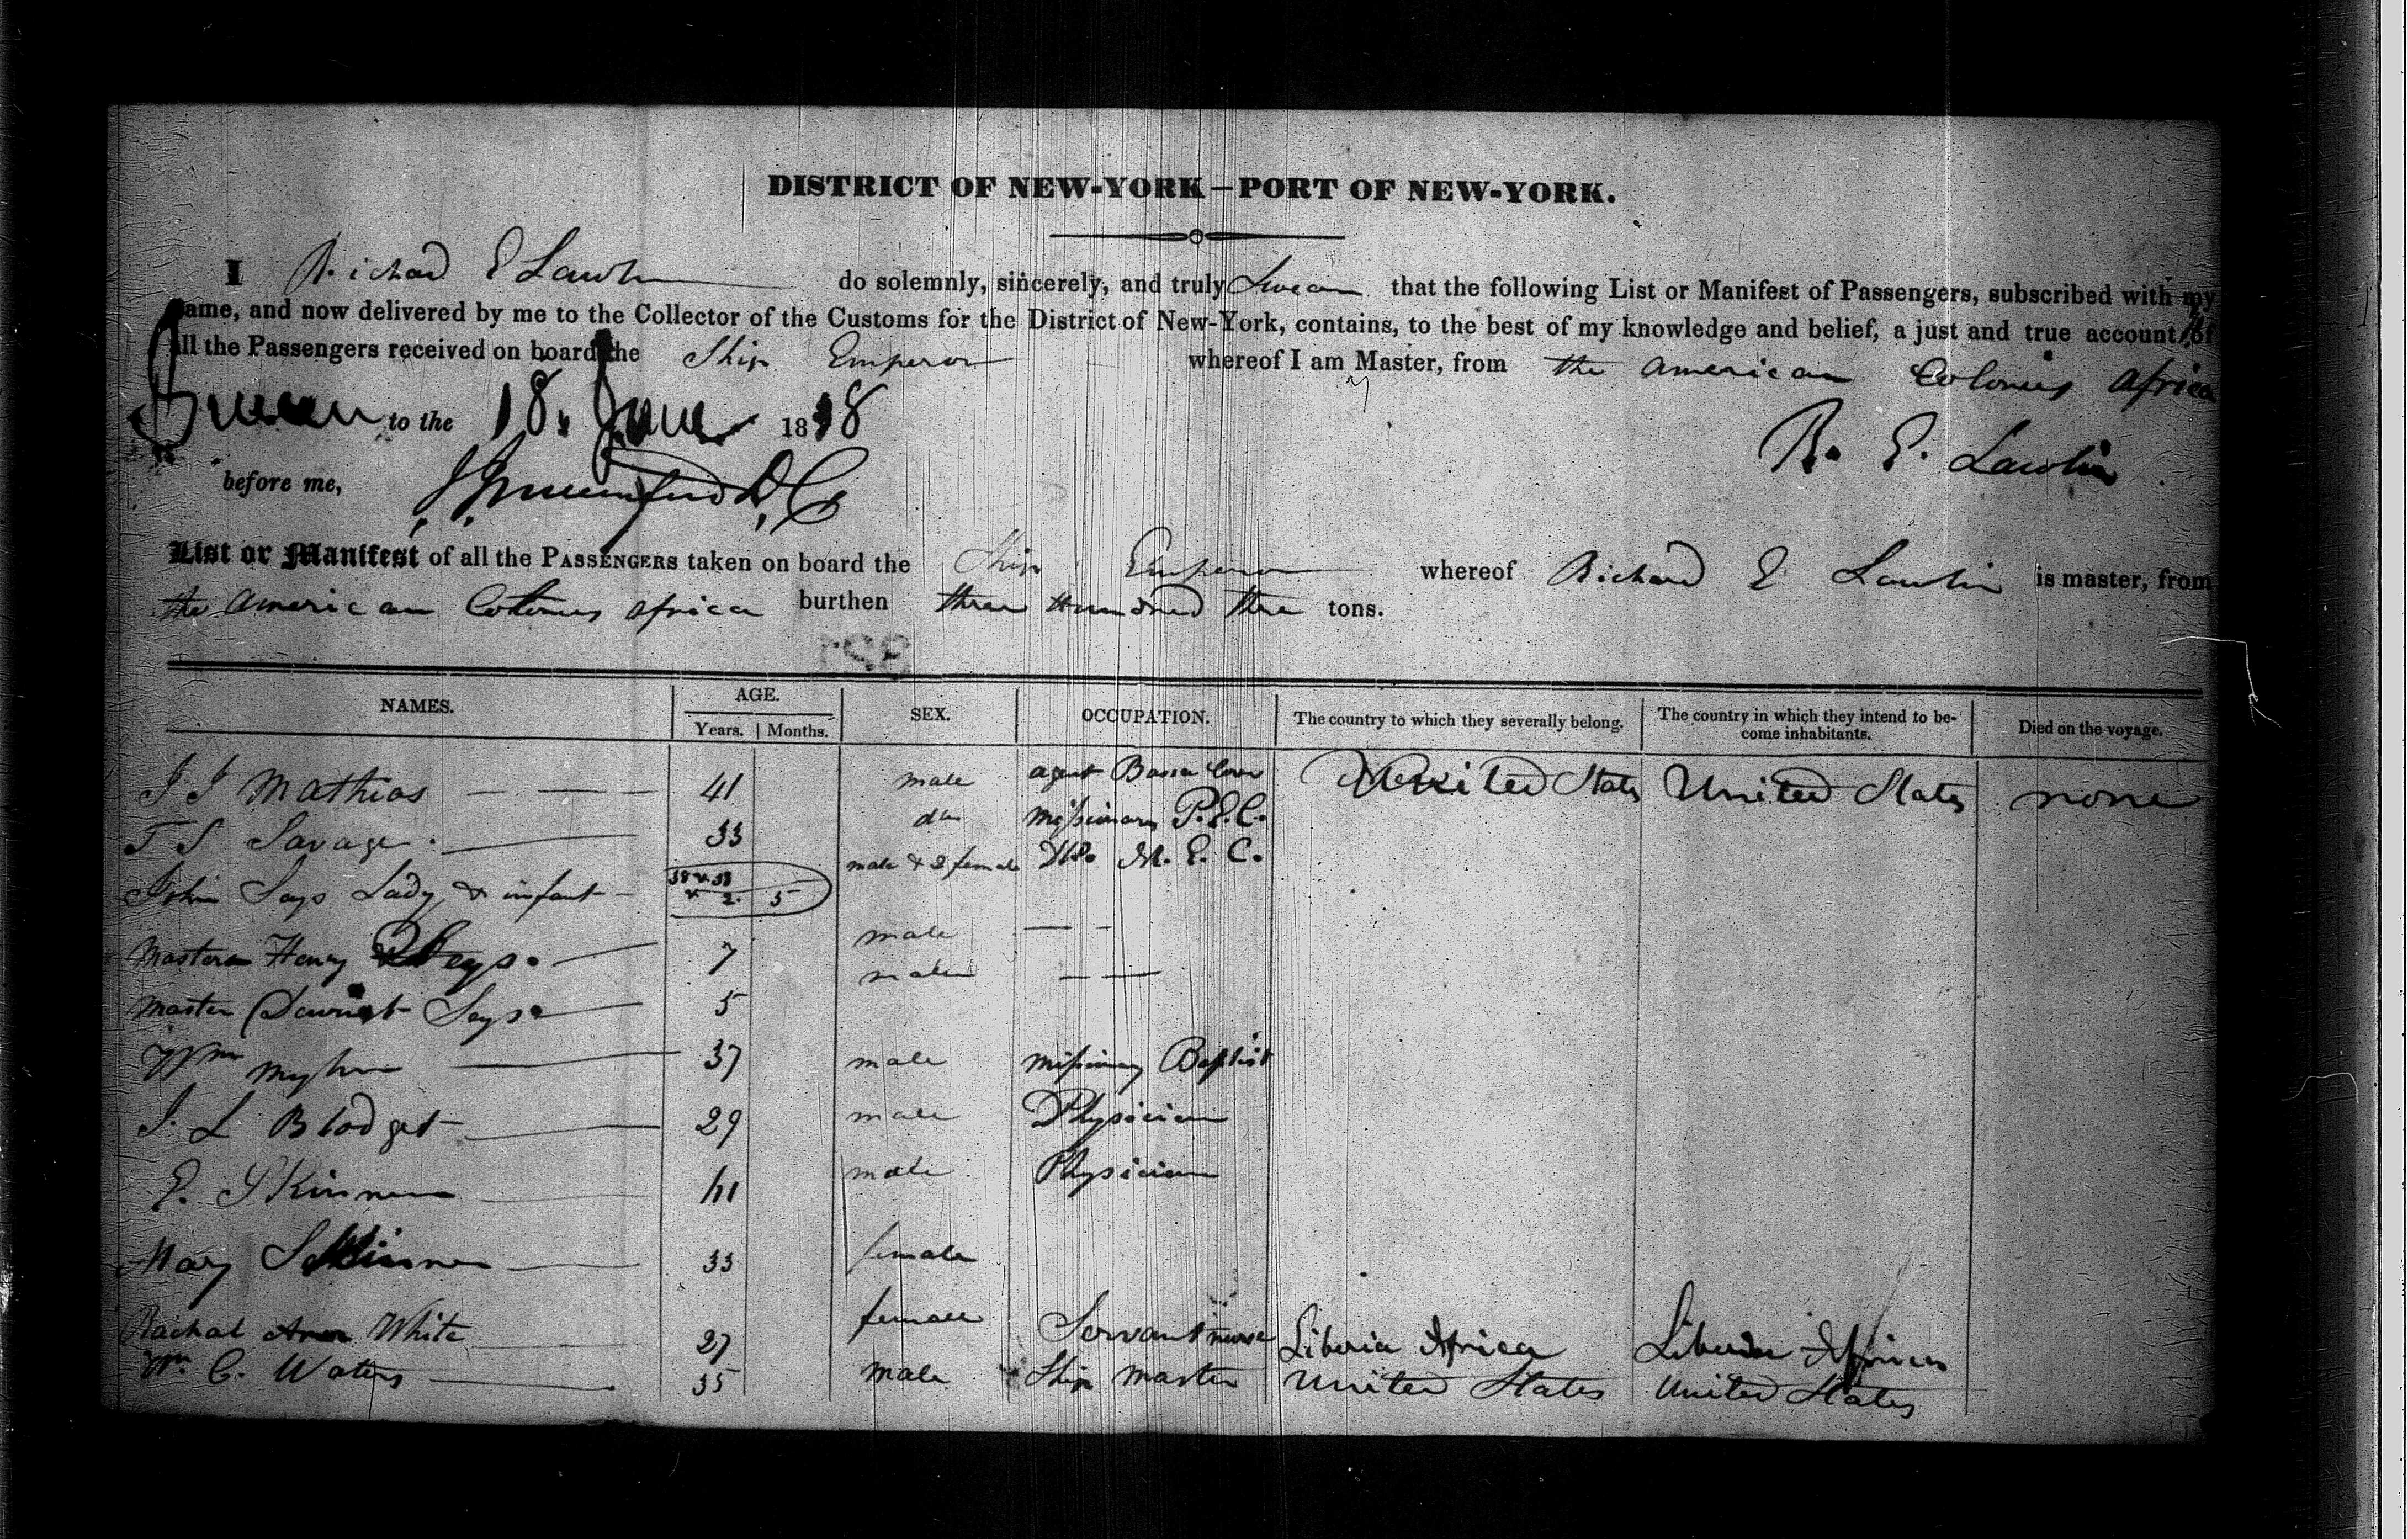 DISTRICT OF NEW-YORK—PORT OF NEW-YORK.
I Richard E Lawlin do solemnly, sincerely, and truly Swear that the following List or Manifest of Passengers, subscribed with my
name, and now delivered by me to the Collector of the Customs for the District of New-York, contains, to the best of my knowledge and belief, a just and true account of
all the Passengers received on board the Ship Emperor whereof I am Master, from the American Colonies Africa
Sworn to the 18. June 1838
R. E. Lawlin
before me,
List or Manifest of all the PASSENGERS taken on board the Ship Emperor whereof Richard E Lawlin is master, from
the American Colonies Africa burthen three Hundred three tons.
NAMES. AGE. Years. Months. SEX. OCCUPATION. The country to which they severally belong. The country in which they intend to become inhabitants. Died on the voyage.
J J Mathias 41 male agent Bassa Cove United States United States none
T S Savage 33 do missionary P.E.C.
John Says Lady & infant 38 & 33 & 2. 5 male & 2 female M. E. C.
Master Henry Seys 7 male
Master Says 5 male
Wm 37 male missionary Baptist
J. L Blodget 29 male Physician
E. Skinner 41 male Physician
Mary Skinner 33 female
Rachal Ann White 27 female Servant nurse Liberia Africa Liberia Africa
Wm. C. Waters 35 male Ship master United States United States